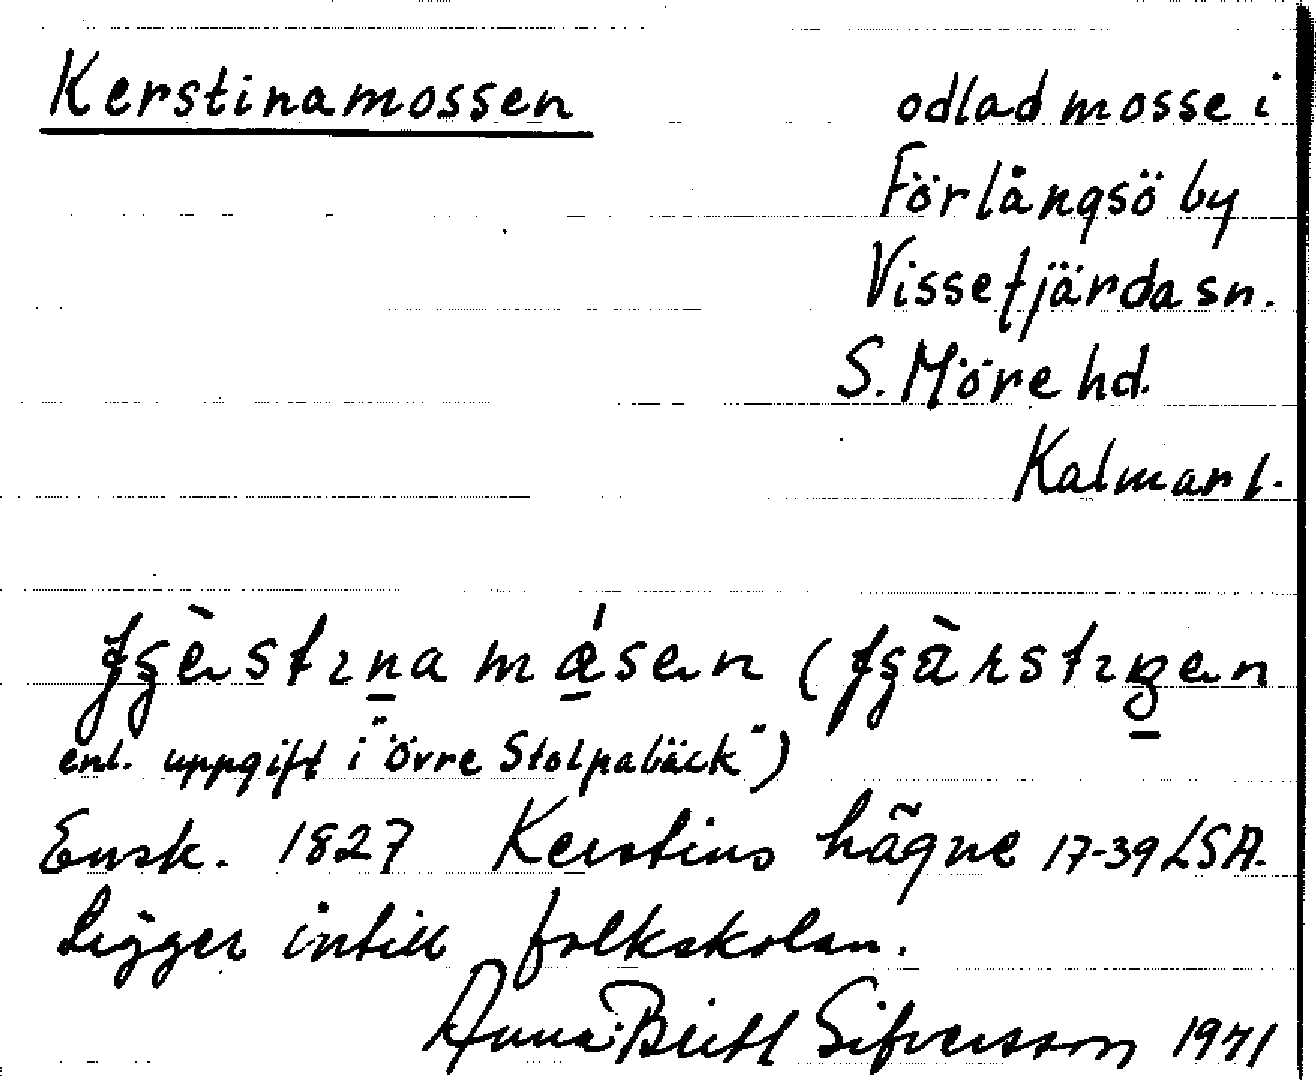 Kerstinamossen
odlad mosse i
Förlångsö by
Vissefjärda sn.
S. Möre hd.
Kalmar l.
enl. uppgift i "övre Stolpabäck")
Ensk. 1827 Kerstins hägne 17-39 LSA.
Ligger intill folkskolan.
Anna-Britt Sifversson 1971